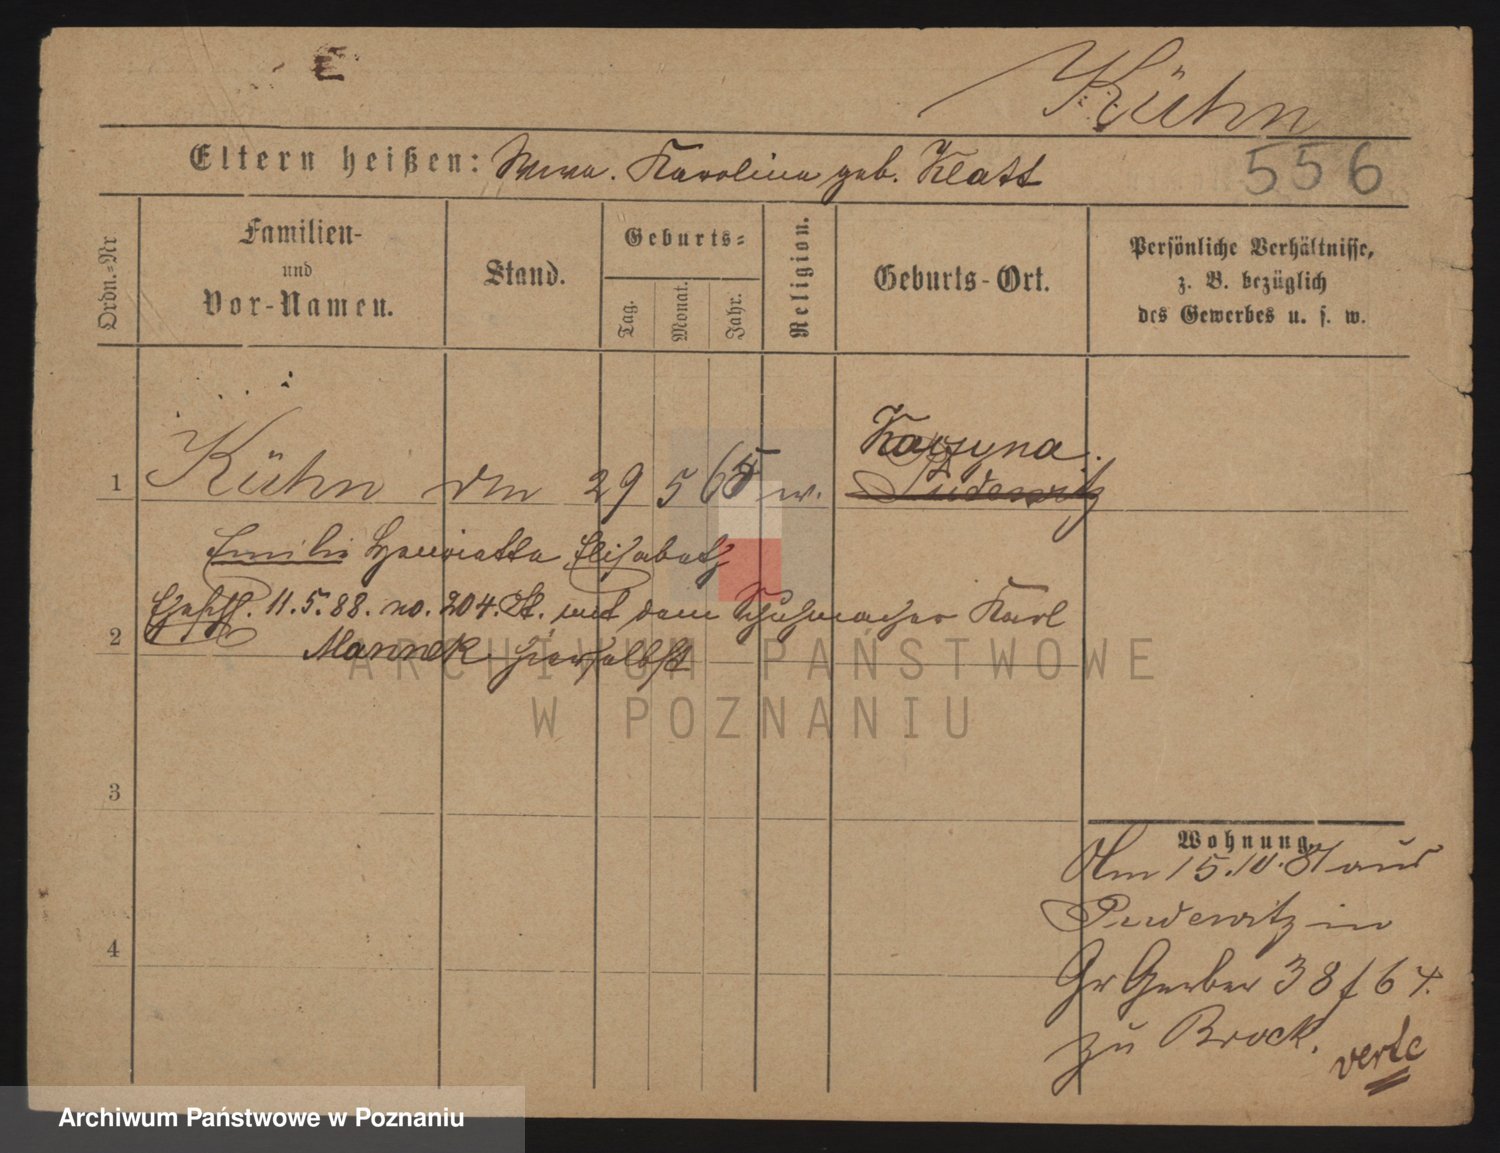 E
Kühn
556
Eltern heißen: Wwa. Karolina geb. Klatt
Ordn.=Nr
Familien-
und
Vor-Namen.
Stand.
Geburts=
Tag.
Monat.
Jahr.
Religion.
Geburts-Ort.
Persönliche Verhältnisse,
z. B. bezüglich
des Gewerbes u. s. w.
Karsyna.
1 Kühn 29 5 65 w. Pudewitz
Emilie Henriette Elisabeth
Ehesch. 11.5.88. no. 204. St. mit dem Schuhmacher Karl
2 Mannek hierselbst
3
Wohnung.
Am 15.10.87 aus
Pudewitz in
4
Gr Gerber 38 f 64.
zu Brock.
verte
ARCHIWUM PAŃSTWOWE
W POZNANIU
Archiwum Państwowe w Poznaniu